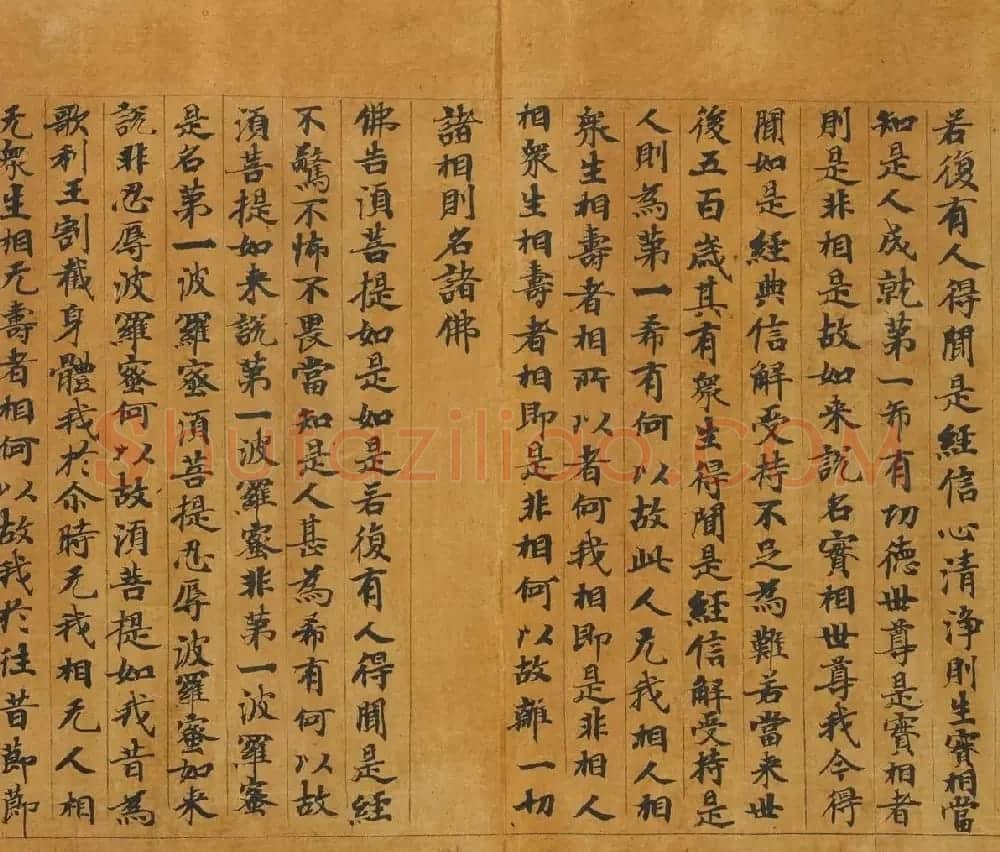 若復有人得聞是經信心清淨則生實相當
知是人成就苐一希有切德世尊是實相者
則是非相是故如来說名實相世尊我今得
聞如是經典信解受持不足為難若當来世
後五百歲其有衆生得聞是經信解受持是
人則為苐一希有何以故此人无我相人相
衆生相壽者相所以者何我相即是非相人
相衆生相壽者相即是非相何以故離一切
諸相則名諸佛
佛告湏菩提如是如是若復有人得聞是經
不驚不怖不畏當知是人甚為希有何以故
湏菩提如来說苐一波羅蜜非苐一波羅蜜
是名苐一波羅蜜湏菩提忍辱波羅蜜如来
說非忍辱波羅蜜何以故湏菩提如我昔為
歌利王割截身體我於尒時无我相无人相
无衆生相无壽者相何以故我於往昔節節
Shutaziliao.COM